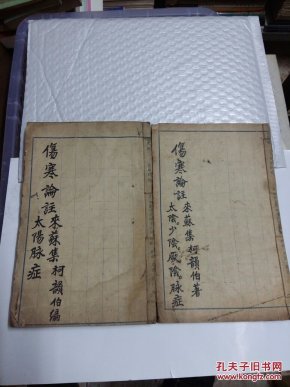 傷寒論註來蘇集柯韻伯著
太陰少陰厥陰脉症
傷寒論註來蘇集柯韻伯編
太陽脉症
孔夫子旧书网